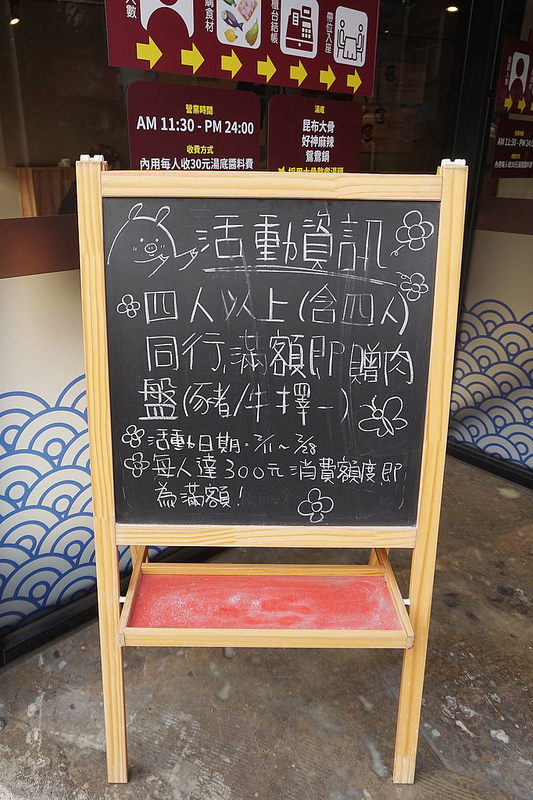 人數
購食材
櫃台結帳
帶位入座
營業時間
AM 11:30 - PM 24:00
收費方式
內用每人收30元湯底醬料費
湯底
昆布大骨
好神麻辣
鴛鴦鍋
活動資訊
四人以上(含四人)
同行,滿額即贈肉
盤(豬/牛擇一)
活動日期:2/11~2/28
每人達300元消費額度即
為滿額!